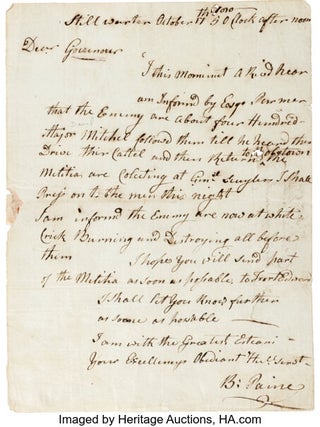 Still warter October 11th 1780 2 Clock after noon
Dear Governer
I this Moment arived hear
am Informd by Esqr Pormer
that the Enemy are about four Hundred
Major Mitchel followed them till he heard them
Drive thir Cattel and then Returnd
the
Militia are Colecting at Genl Scuylers I Shall
Press on to the men this night
I am informd the Enemy are now at white
Crick Burning and Distroying all before
them I hope you will Send part
of the Militia as soon as possable to Fort Edward
I Shall let you Know further
as soone as posable
I am with the Greatest Esteam
Your Excellencys Obediant Hble Servt
B: Paine
Imaged by Heritage Auctions, HA.com